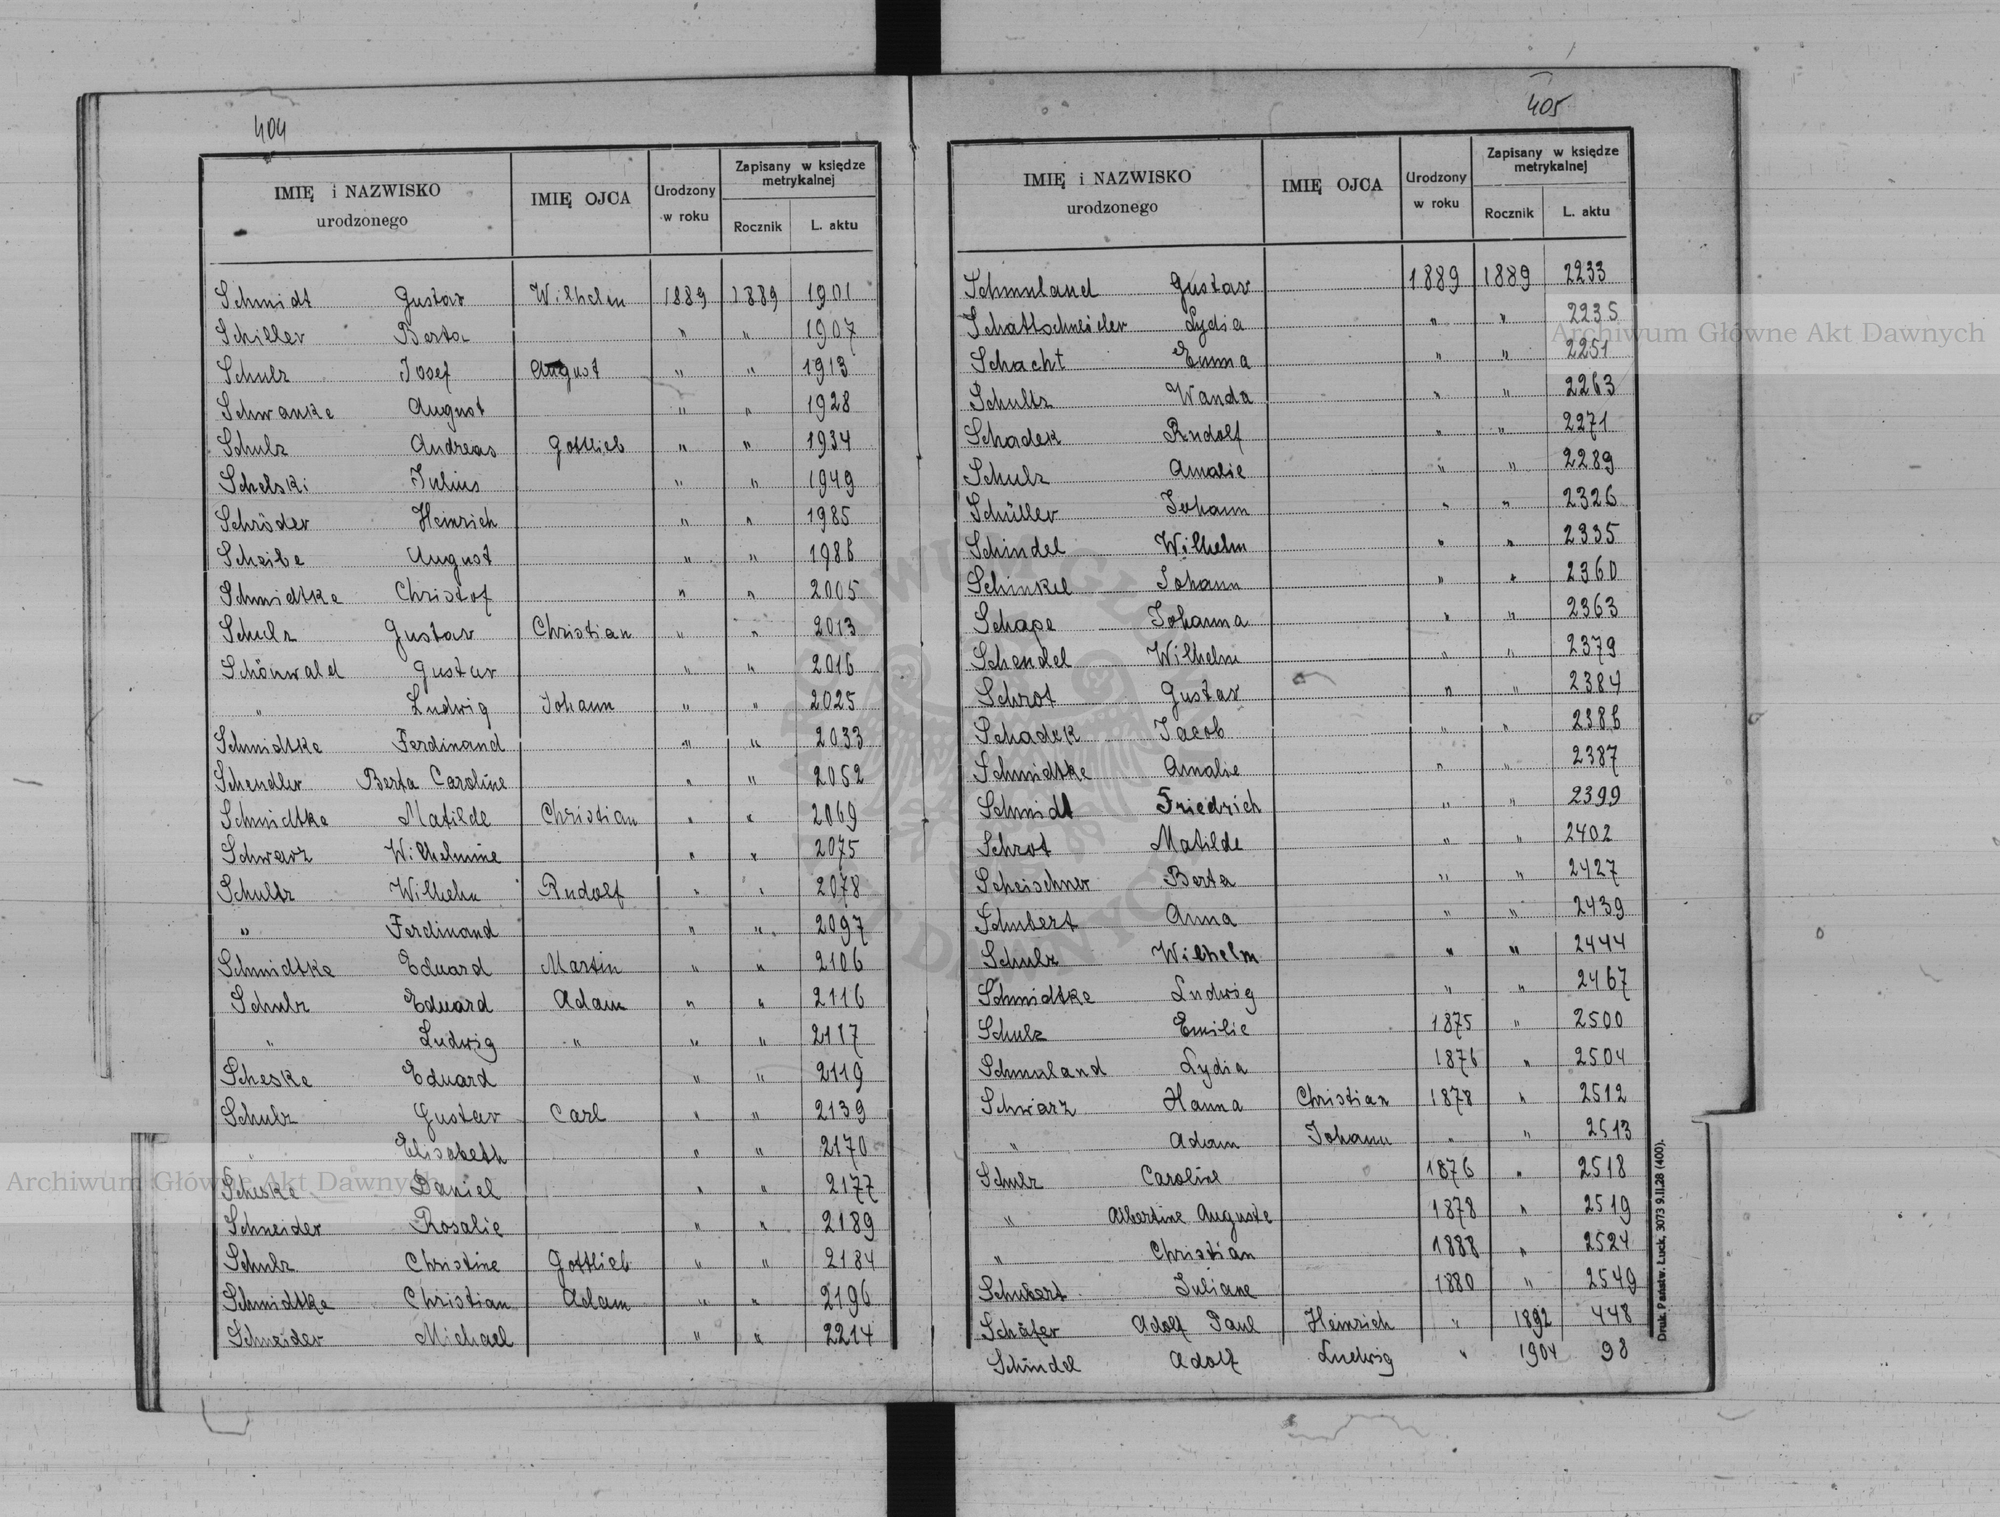 404
IMIĘ i NAZWISKO urodzonego IMIĘ OJCA Urodzony w roku Zapisany w księdze metrykalnej Rocznik L. aktu
Schmidt Gustav Wilhelm 1889 1889 1901
Schiller Berta " " 1907
Schulz Josef August " " 1913
Schwanke August " " 1928
Schulz Andreas Gottlieb " " 1934
Schelski Julius " " 1949
Schröder Heinrich " " 1985
Scheibe August " " 1986
Schmidtke Christof " " 2005
Schulz Gustav Christian " " 2013
Schönwald Gustav " " 2016
" Ludwig Johann " " 2025
Schmidtke Ferdinand " " 2033
Schendler Berta Caroline " " 2052
Schmidtke Matilde Christian " " 2069
Schwarz Wilhelmine " " 2075
Schultz Wilhelm Rudolf " " 2078
" Ferdinand " " 2097
Schmidtke Eduard Martin " " 2106
Schulz Eduard Adam " " 2116
" Ludwig " " " 2117
Scheske Eduard " " 2119
Schulz Gustav Carl " " 2139
" Elisabeth " " 2170
Scheske Daniel " " 2177
Schneider Rosalie " " 2189
Schulz Christine Gottlieb " " 2184
Schmidtke Christian Adam " " 2196
Schneider Michael " " 2214
405
IMIĘ i NAZWISKO urodzonego IMIĘ OJCA Urodzony w roku Zapisany w księdze metrykalnej Rocznik L. aktu
Schmuland Gustav 1889 1889 2233
Schattschneider Lydia " " 2235
Schacht Emma " " 2251
Schultz Wanda " " 2263
Schadek Rudolf " " 2271
Schulz Amalie " " 2289
Schüller Johann " " 2326
Schindel Wilhelm " " 2335
Schinkel Johann " " 2360
Schape Johanna " " 2363
Schendel Wilhelm " " 2379
Schrot Gustav " " 2384
Schadek Jacob " " 2386
Schmidtke Amalie " " 2387
Schmidt Friedrich " " 2399
Schrot Matilde " " 2402
Scheischner Berta " " 2427
Schubert Anna " " 2439
Schulz Wilhelm " " 2444
Schmidtke Ludwig " " 2467
Schulz Emilie 1875 " 2500
Schmuland Lydia 1876 " 2504
Schwarz Hanna Christian 1878 " 2512
" Adam Johann " " 2513
Schulz Caroline 1876 " 2518
" Albertine Auguste 1878 " 2519
" Christian 1888 " 2524
Schubert Juliane 1880 " 2549
Schäfer Adolf Paul Heinrich " 1892 448
Schindel Adolf Ludwig " 1904 98
Druk. Państw. Łuck, 3073 9.II.28 (400).
Archiwum Główne Akt Dawnych
Archiwum Główne Akt Dawnych
ARCHIWUM GŁÓWNE AKT DAWNYCH